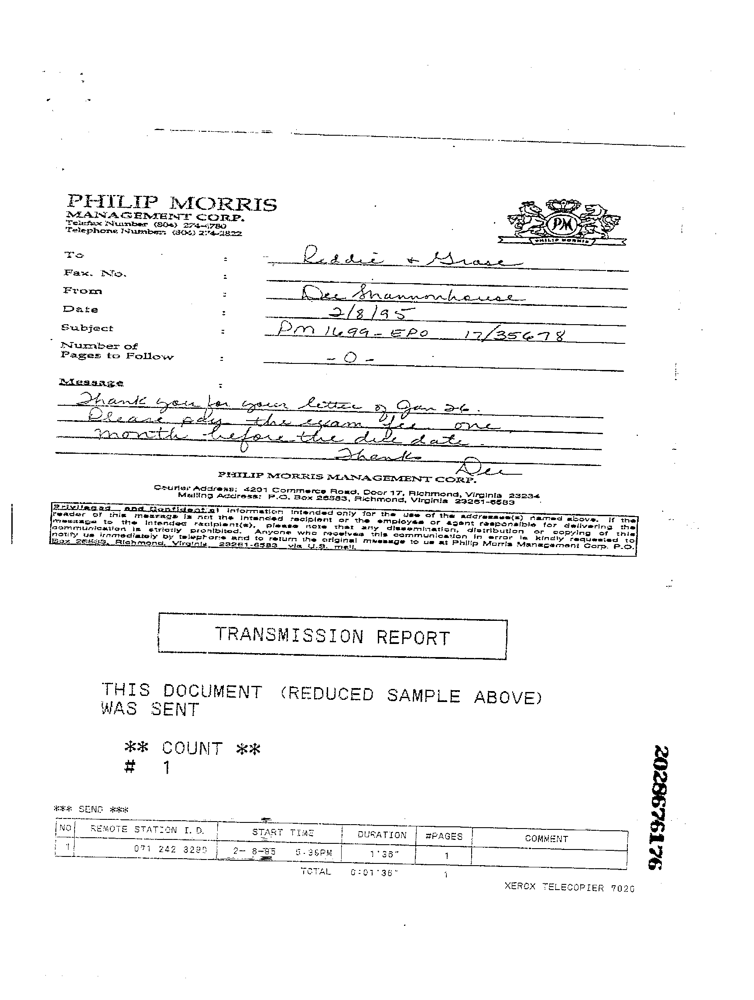 PHILIP MORRIS
MANAGEMENT CORP.
Telefax Number (804) 274-4780
Telephone Number: (804) 274-2822
PM
PHILIP MORRIS
To : Reddie & Grose
Fax. No. :
From : Dee Shannonhouse
Date : 2/8/95
Subject : PM 1699-EPO 17/35678
Number of
Pages to Follow : - 0 -
Message :
Thank you for your letter of Jan 26.
Please pay the exam fee one
month before the due date.
Thanks
Dee
PHILIP MORRIS MANAGEMENT CORP.
Courier Address: 4201 Commerce Road, Door 17, Richmond, Virginia 23234
Mailing Address: P.O. Box 26583, Richmond, Virginia 23261-6583
Privileged and Confidential information intended only for the use of the addressee(s) named above. If the
reader of this message is not the intended recipient or the employee or agent responsible for delivering the
message to the intended recipient(s), please note that any dissemination, distribution or copying of this
communication is strictly prohibited. Anyone who receives this communication in error is kindly requested to
notify us immediately by telephone and to return the original message to us at Philip Morris Management Corp. P.O.
Box 26583, Richmond, Virginia, 23261-6583 via U.S. mail.
TRANSMISSION REPORT
THIS DOCUMENT (REDUCED SAMPLE ABOVE)
WAS SENT
** COUNT **
# 1
*** SEND ***
NO REMOTE STATION I.D. START TIME DURATION #PAGES COMMENT
1 071 242 3290 2- 8-95 5:36PM 1'38" 1
TOTAL 0:01'38" 1
XEROX TELECOPIER 7020
2028676176